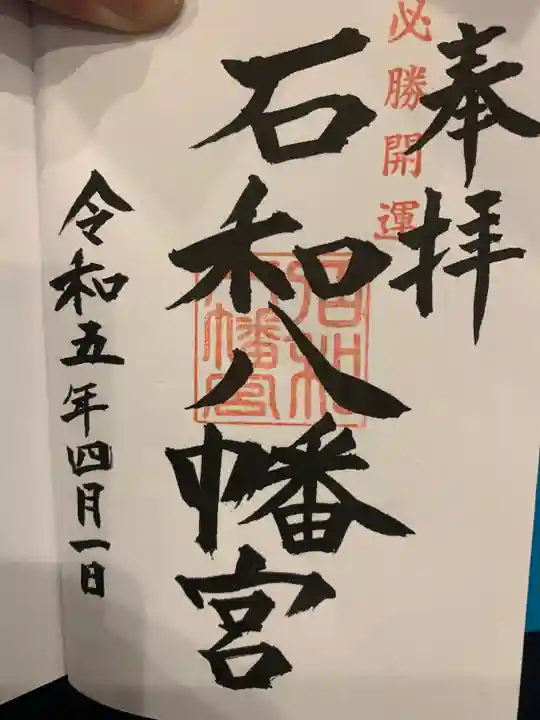 奉拝
必勝開運
石和八幡宮
石和八幡宮
令和五年四月一日